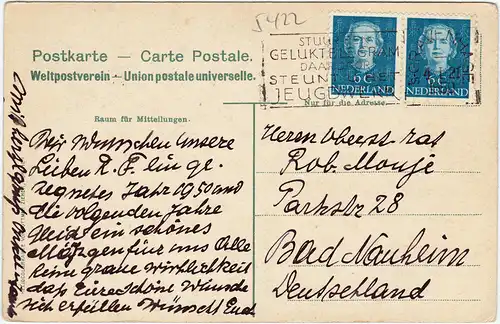 5422
Postkarte — Carte Postale.
Weltpostverein – Union postale universelle.
STUU
GELUKTELEGRAM
DAN
STEUNT HET
JEUGDWE
6 c
NEDERLAND
6 c
NEDERLAND
Nur für die Adresse.
Raum für Mitteilungen.
Wir Wünschen unsere
Lieben R. F. Ein ge
zegnetes Jahr 1950 und
die volgenden Jahre
ein schönes
für uns Alle
keine graue wirklichkeit
das Eure schöne Wünsche
sich erfüllen Wünscht Euch
Herrn Oberpostrat
Rob. Mouje
Parkstr 28
Bad Nauheim
Deutschland